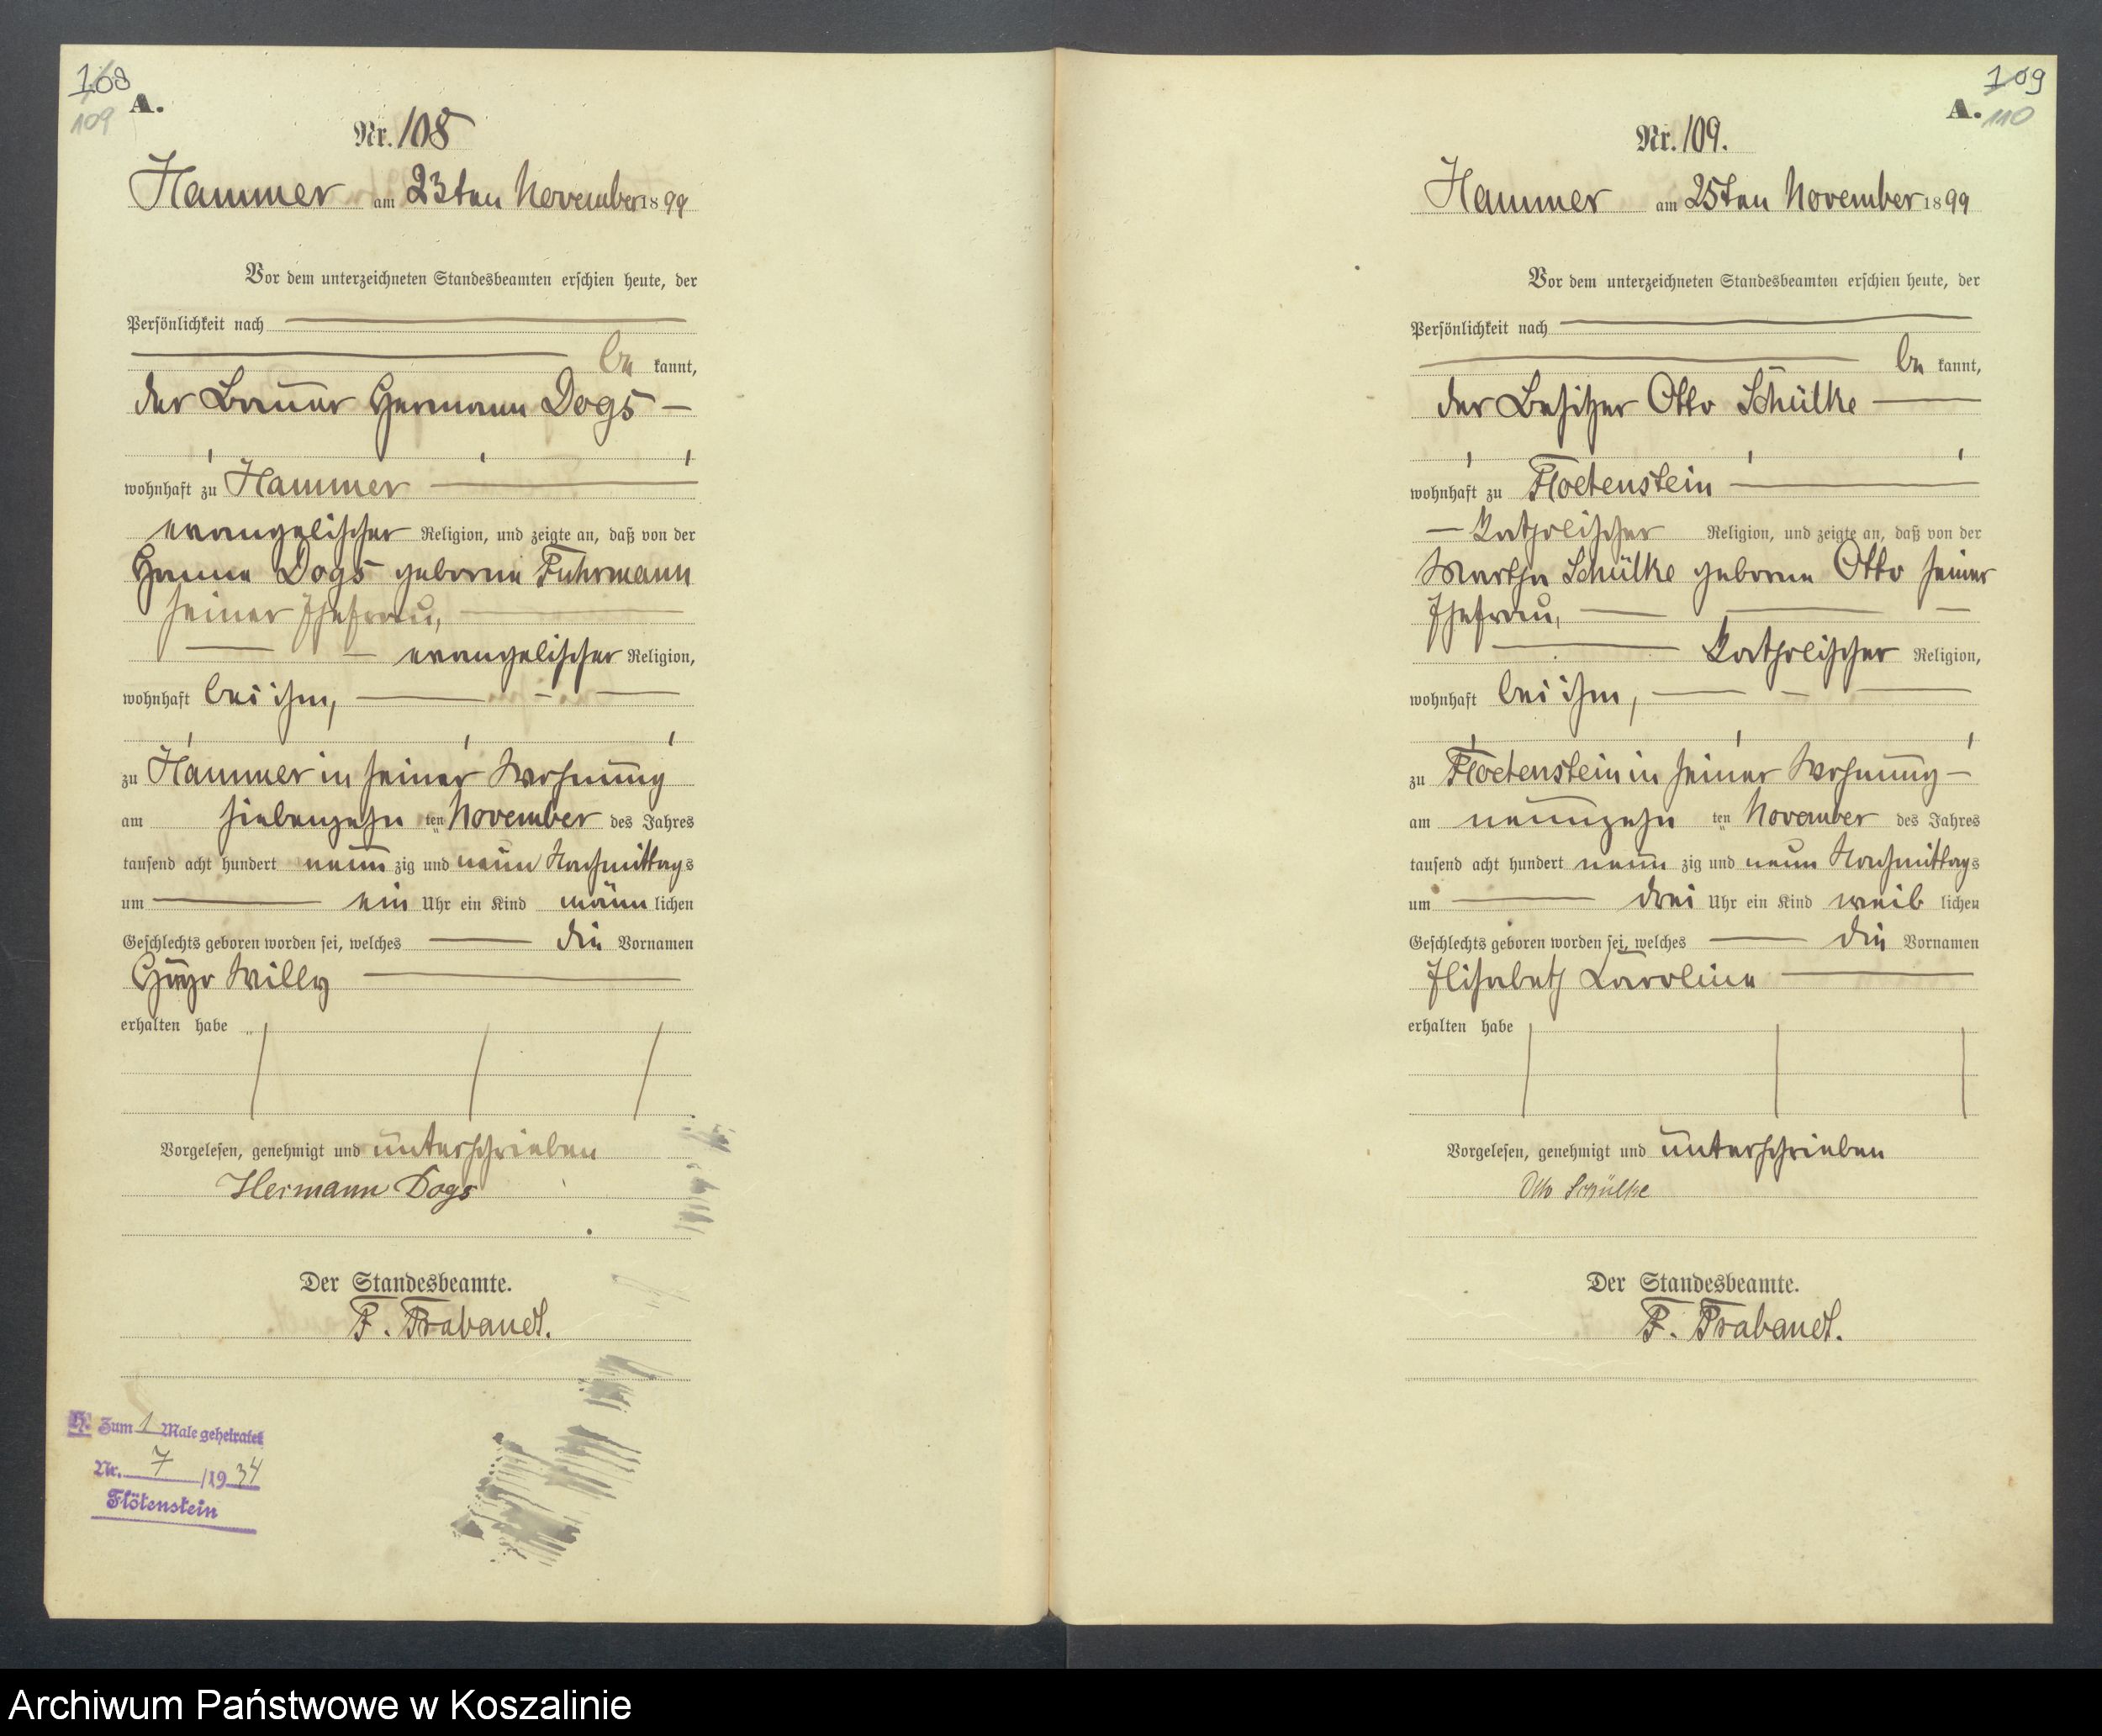 108
109
A.
Nr. 108
Hammer am 23ten November 1899
Vor dem unterzeichneten Standesbeamten erschien heute, der
Persönlichkeit nach
be kannt,
der Bauer Hermann Dogs
wohnhaft zu Hammer
evangelischer Religion, und zeigte an, daß von der
Dogs geborene Fuhrmann
seiner Ehefrau,
evangelischer Religion,
wohnhaft bei ihm,
zu Hammer in seiner Wohnung
am siebenzehn ten November des Jahres
tausend acht hundert neun zig und neun Nachmittags
um ein Uhr ein Kind männlichen
Geschlechts geboren worden sei, welches die Vornamen
Willy
erhalten habe
Vorgelesen, genehmigt und unterschrieben
Hermann Dogs
Der Standesbeamte.
F. Trabandt.
H. Zum 1 Male geheiratet
Nr. 7 /1934
Flötenstein
109
110
A.
Nr. 109.
Hammer am 25ten November 1899
Vor dem unterzeichneten Standesbeamten erschien heute, der
Persönlichkeit nach
be kannt,
der Besitzer Otto Schülke
wohnhaft zu Floetenstein
katholischer Religion, und zeigte an, daß von der
Martha Schülke geborene Otto seiner
Ehefrau,
katholischer Religion,
wohnhaft bei ihm,
zu Floetenstein in seiner Wohnung
am neunzehn ten November des Jahres
tausend acht hundert neun zig und neun Nachmittags
um drei Uhr ein Kind weib lichen
Geschlechts geboren worden sei, welches die Vornamen
Elisabeth Karoline
erhalten habe
Vorgelesen, genehmigt und unterschrieben
Otto Schülke
Der Standesbeamte.
F. Trabandt.
Archiwum Państwowe w Koszalinie